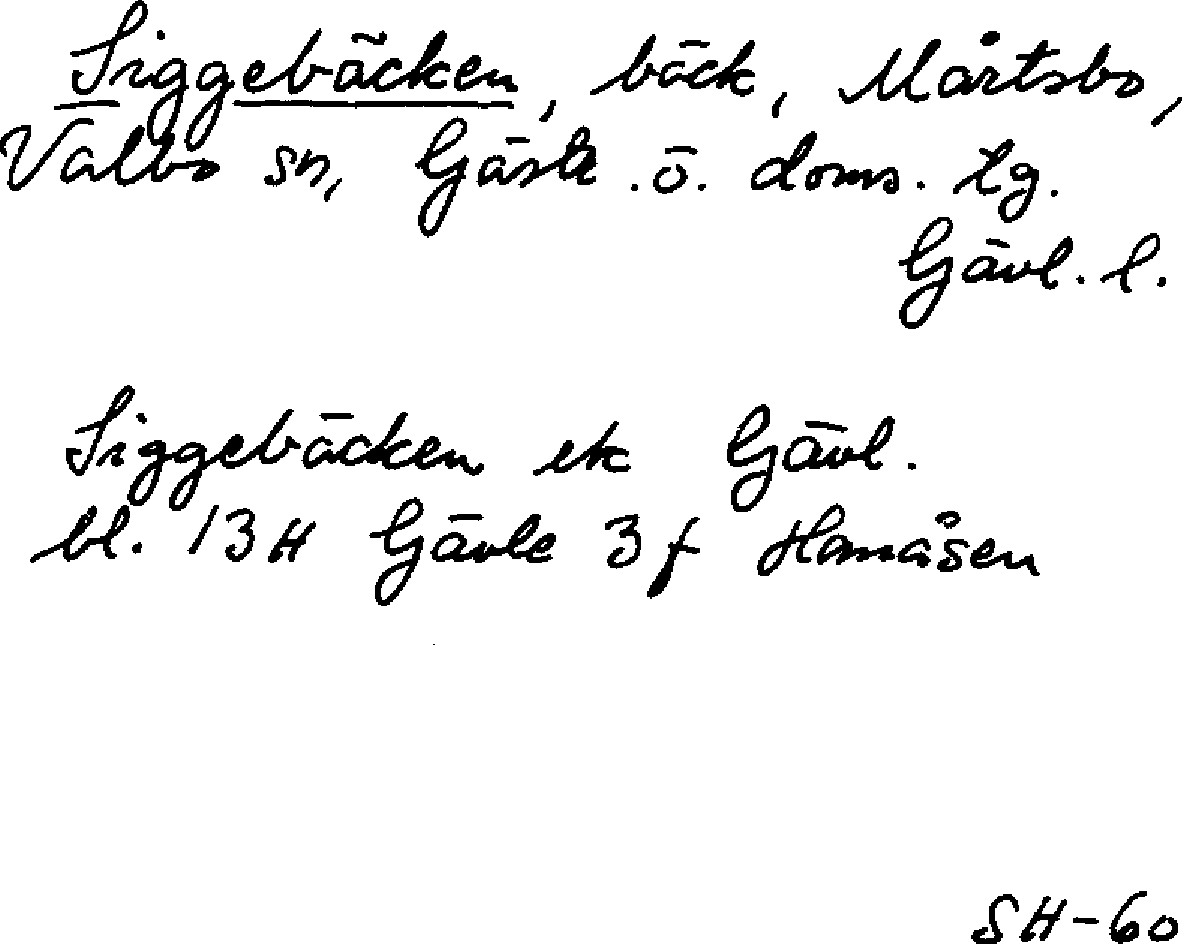 Siggebäcken, bäck, Mårtsbo,
Valbo sn, Gästr. ö. doms. tg.
Gävl. l.
Siggebäcken ek Gävl.
bl. 13H Gävle 3f Hamåsen
SH-60